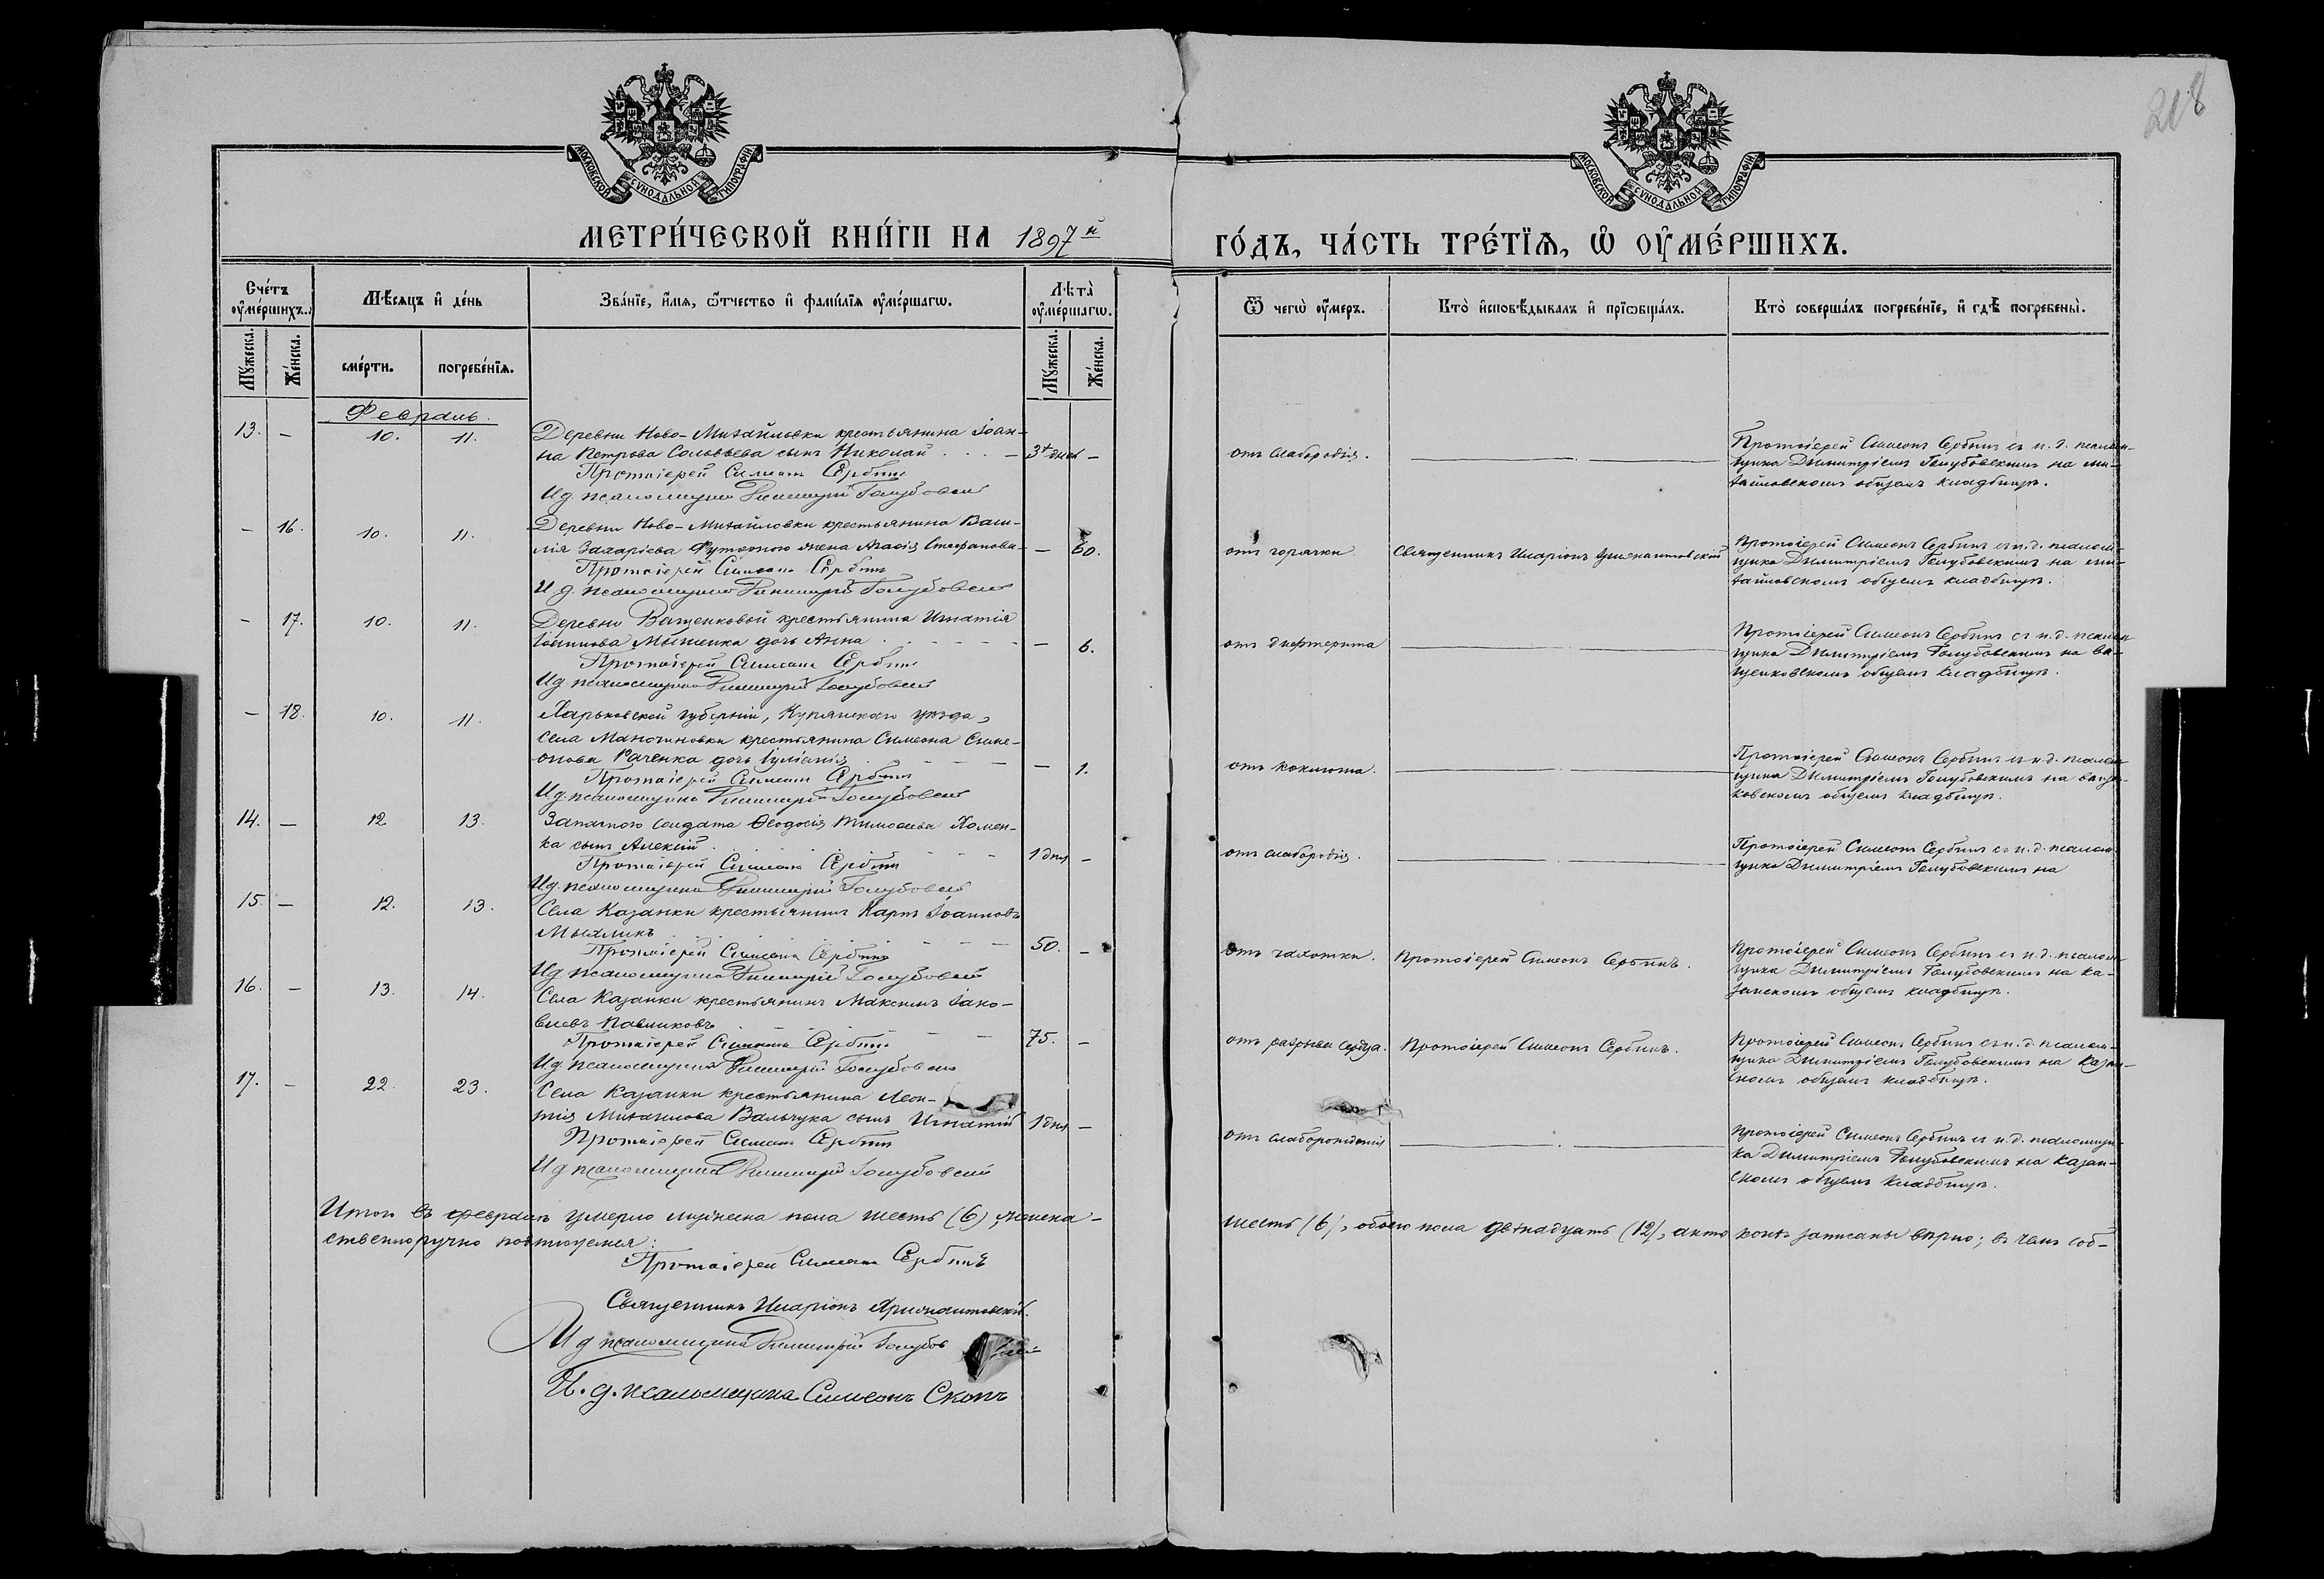 218
МОСКОВСКОЙ СѴНОДАЛЬНОЙ ТИПОГРАФІИ
МОСКОВСКОЙ СѴНОДАЛЬНОЙ ТИПОГРАФІИ
МЕТРИ́ЧЕСКОЙ КНИ́ГИ НА 1897й
ГО́ДЪ, ЧА́СТЬ ТРЕ́ТЇѦ, Ѡ҆ ОУ҆МЕ́РШИХЪ.
Сче́тъ оу҆ме́ршихъ.
Мѣ́сяцъ и҆ де́нь
Зва́нїе, и҆́мѧ, ѿтчество и҆ фами́лїѧ оу҆ме́ршагѡ.
Лѣта̀ оу҆ме́ршагѡ.
Ѿ чегѡ̀ оу҆́меръ.
Кто̀ и҆сповѣ́дывалъ и҆ прїѡбща́лъ.
Кто̀ соверша́лъ погребе́нїе, и҆ гдѣ̀ погребены̀.
Мꙋ́жеска.
Же́нска.
сме́рти.
погребе́нїѧ.
Мꙋ́жеска.
Же́нска.
Февраль.
13. – 10. 11. Деревни Ново-Михайловки крестьянина Іоан-
на Петрова Соловьева сынъ Николай – 3х дней –
Протоіерей Симеонъ Сербинъ
И д. псаломщика Димитрій Голубовскій
отъ слабородія.
Протоіерей Симеонъ Сербинъ съ и. д. псалом-
щика Димитріемъ Голубовскимъ на ми-
хайловскомъ общемъ кладбищѣ.
– 16. 10. 11. Деревни Ново-Михайловки крестьянина Васи-
лія Захаріева жена Агаѳія Стефанова – – 60.
Протоіерей Симеонъ Сербинъ
И д. псаломщика Димитрій Голубовскій
отъ горячки Священникъ Иларіонъ
Протоіерей Симеонъ Сербинъ съ и. д. псалом-
щика Димитріемъ Голубовскимъ на ми-
хайловскомъ общемъ кладбищѣ.
– 17. 10. 11. Деревни Ващенковой крестьянина Игнатія
дочь Анна – 6.
Протоіерей Симеонъ Сербинъ
И д. псаломщика Димитрій Голубовскій
отъ дифтерита
Протоіерей Симеонъ Сербинъ съ и. д. псалом-
щика Димитріемъ Голубовскимъ на ва-
щенковскомъ общемъ кладбищѣ.
– 18. 10. 11. Харьковской губерніи, Купянскаго уѣзда,
села крестьянина Симеона Симе-
онова дочь Іуліанія – 1.
Протоіерей Симеонъ Сербинъ
И д. псаломщика Димитрій Голубовскій
отъ коклюша.
Протоіерей Симеонъ Сербинъ съ и. д. псалом-
щика Димитріемъ Голубовскимъ на ващен-
ковскомъ общемъ кладбищѣ.
14. – 12 13. Запаснаго солдата Ѳеодосія Тимоѳеева Хомен-
ка сынъ Алексій 1 дня –
Протоіерей Симеонъ Сербинъ
И д. псаломщика Димитрій Голубовскій
отъ слабородія.
Протоіерей Симеонъ Сербинъ съ и. д. псалом-
щика Димитріемъ Голубовскимъ на
15. – 12. 13. Села Казанки крестьянинъ Карпъ Іоанновъ
50. –
Протоіерей Симеонъ Сербинъ
И д. псаломщика Димитрій Голубовскій
отъ чахотки. Протоіерей Симеонъ Сербинъ.
Протоіерей Симеонъ Сербинъ съ и. д. псалом-
щика Димитріемъ Голубовскимъ на ка-
занскомъ общемъ кладбищѣ.
16. – 13. 14. Села Казанки крестьянинъ Максимъ Іако-
влевъ Павликовъ 75. –
Протоіерей Симеонъ Сербинъ
И д. псаломщика Димитрій Голубовскій
отъ разрыва сердца. Протоіерей Симеонъ Сербинъ.
Протоіерей Симеонъ Сербинъ съ и. д. псалом-
щика Димитріемъ Голубовскимъ на казан-
скомъ общемъ кладбищѣ.
17. – 22. 23. Села Казанки крестьянина Леон-
тія Михаилова Вальчука сынъ Игнатій 1 дня –
Протоіерей Симеонъ Сербинъ
И д псаломщика Димитрій Голубовскій
отъ слаборожденія
Протоіерей Симеонъ Сербинъ съ и. д. псаломщи-
ка Димитріемъ Голубовскимъ на казан-
скомъ общемъ кладбищѣ.
Итого въ февралѣ умерло мужеска пола шесть (6), женска – шесть (6), обоего пола двѣнадцать (12), акты коихъ записаны вѣрно; въ чемъ соб-
ственноручно подписуемся:
Протоіерей Симеонъ Сербинъ
Священникъ Иларіонъ
И д псаломщика Димитрій Голубов
И. д. псаломщика Симеонъ Скопъ